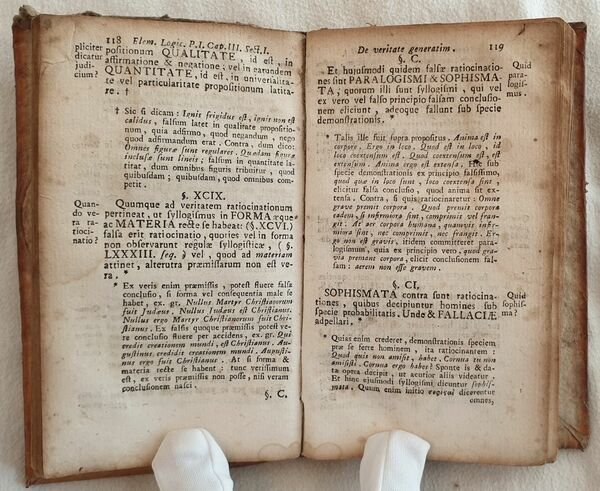 118 Elem. Logic. P.I. Cap. III. Sect. I.
pliciter
dicatur
judi-
cium?
positionum QUALITATE, id est, in
affirmatione & negatione: vel in earundem
QUANTITATE, id est, in universalita-
te vel particularitate propositionum latita-
re. †
† Sic si dicam: Ignis frigidus est, ignis non est
calidus, falsum latet in qualitate propositio-
num, quia adfirmo, quod negandum, nego
quod adfirmandum erat. Contra, dum dico:
Omnes figuræ sunt regulares. Quædam figuræ
inclusæ sunt lineis; falsum in quantitate la-
titat, dum omnibus figuris tribuitur, quod
quibusdam; quibusdam, quod omnibus com-
petit.
§. XCIX.
Quan-
do ve-
ra ra-
tioci-
natio?
Quumque ad veritatem ratiocinationum
pertineat, ut syllogismus in FORMA æque
ac MATERIA recte se habeat: (§. XCVI.)
falsa erit ratiocinatio, quoties vel in forma
non observarunt regulæ syllogisticæ, (§.
LXXXIII. seq.) vel, quod ad materiam
attinet, alterutra præmissarum non est ve-
ra. *
* Ex veris enim præmissis, potest fluere falsa
conclusio, si forma vel consequentia male se
habet, ex. gr. Nullus Martyr Christianorum
fuit Judæus. Nullus Judæus est Christianus.
Nullus ergo Martyr Christianorum fuit Chri-
stianus. Ex falsis quoque præmissis potest ve-
ra conclusio fluere per accidens, ex. gr. Qui
credit creationem mundi, est Christianus. Au-
gustinus credidit creationem mundi. Augusti-
nus ergo fuit Christianus. At si forma &
materia recte se habent: tunc verissimum
est, ex veris præmissis non posse, nisi veram
conclusionem nasci.
§. C.
De veritate generatim. 119
§. C.
Et hujusmodi quidem falsæ ratiocinatio-
nes sint PARALOGISMI & SOPHISMA-
TA; quorum illi sunt syllogismi, qui vel
ex vero vel falso principio falsam conclusio-
nem eliciunt, adeoque fallunt sub specie
demonstrationis. *
Quid
para-
logis-
mus.
* Talis ille fuit supra propositus. Anima est in
corpore. Ergo in loco. Quod est in loco, id
loco coextensum est. Quod coextensum est, est
extensum. Anima ergo est extensa. Hic sub
specie demonstrationis ex principio falsissimo,
quod quæ in loco sunt, loco coextensa sint,
elicitur falsa conclusio, quod anima sit ex-
tensa. Contra, si quis ratiocinaretur: Omne
grave premit corpora. Quod premit corpora
eadem, si infirmiora sint, comprimit vel fran-
git. At aer corpora humana, quamvis infir-
miora sint, nec comprimit, nec frangit. Er-
go non est gravis, itidem committeret paralo-
gismum, quia ex principio vero, quod gra-
via premant corpora, elicit conclusionem fal-
sam: aerem non esse gravem.
§. CI.
SOPHISMATA contra sunt ratiocina-
tiones, quibus decipiuntur homines sub
specie probabilitatis. Unde & FALLACIÆ
adpellari. *
Quid
sophis-
ma?
* Quias enim crederet, demonstrationis speciem
præ se ferre hominem, ita ratiocinantem:
Quod quis non amisit, habet. Cornua tu non
amisisti. Cornua ergo habes? Sponte is & da-
ta opera decipit, ut acutior aliis videatur.
Et hinc ejusmodi syllogismi dicuntur sophis-
mata. Quum enim initio σοφισταὶ dicerentur
omnes,